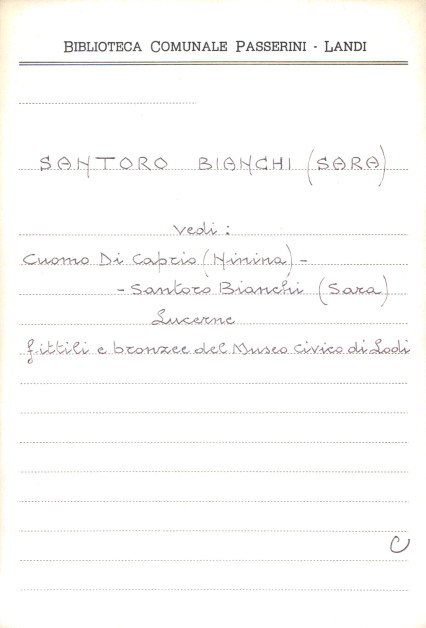 BIBLIOTECA COMUNALE PASSERINI - LANDI
SANTORO BIANCHI (SARA)
vedi:
Cuomo Di Caprio (Ninina) -
- Santoro Bianchi (Sara)
Lucerne
fittili e bronzee del Museo Civico di Lodi
C